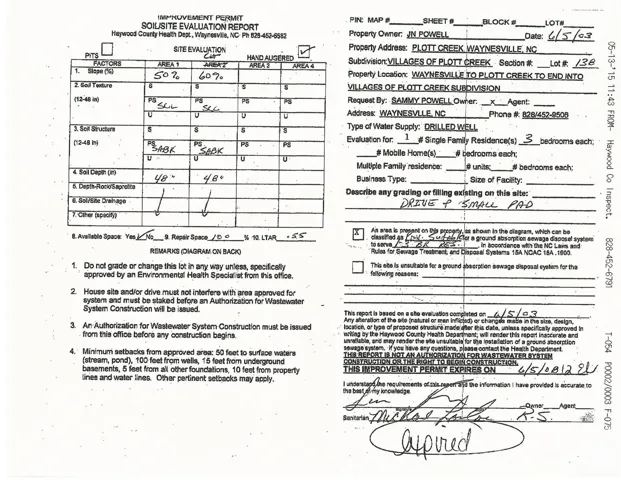 IMPROVEMENT PERMIT
SOIL/SITE EVALUATION REPORT
Haywood County Health Dept., Waynesville, NC Ph 828-452-6682
PITS
SITE EVALUATION
HAND AUGERED
FACTORS AREA 1 AREA 2 AREA 3 AREA 4
1. Slope (%) 50% 60%
2. Soil Texture S S S S
(12-48 in) PS PS PS PS
SCL SCL
U U U U
3. Soil Structure S S S S
(12-48 in) PS PS PS PS
SABK SABK
U U U U
4. Soil Depth (in) 48" 48"
5. Depth-Rock/Saprolite
6. Soil/Site Drainage
7. Other (specify)
8. Available Space: Yes No 9. Repair Space 100 % 10. LTAR .55
REMARKS (DIAGRAM ON BACK)
1. Do not grade or change this lot in any way unless, specifically
approved by an Environmental Health Specialist from this office.
2. House site and/or drive must not interfere with area approved for
system and must be staked before an Authorization for Wastewater
System Construction will be issued.
3. An Authorization for Wastewater System Construction must be issued
from this office before any construction begins.
4. Minimum setbacks from approved area: 50 feet to surface waters
(stream, pond), 100 feet from wells, 15 feet from underground
basements, 5 feet from all other foundations, 10 feet from property
lines and water lines. Other pertinent setbacks may apply.
PIN: MAP # SHEET # BLOCK # LOT#
Property Owner: JN POWELL Date: 6/5/03
Property Address: PLOTT CREEK WAYNESVILLE, NC
Subdivision: VILLAGES OF PLOTT CREEK Section #: Lot #: 138
Property Location: WAYNESVILLE TO PLOTT CREEK TO END INTO
VILLAGES OF PLOTT CREEK SUBDIVISION
Request By: SAMMY POWELL Owner: x Agent:
Address: WAYNESVILLE, NC Phone #: 828/452-9508
Type of Water Supply: DRILLED WELL
Evaluation for: 1 # Single Family Residence(s) 3 bedrooms each;
# Mobile Home(s) # bedrooms each;
Multiple Family residence: # units; # bedrooms each;
Business Type: Size of Facility:
Describe any grading or filling existing on this site:
DRIVE & SMALL PAD
X An area is present on this property, as shown in the diagram, which can be
classified as Prov. Suitable for a ground absorption sewage disposal system
to serve 1-3 BR RES. in accordance with the NC Laws and
Rules for Sewage Treatment, and Disposal Systems 15A NCAC 18A .1900.
This site is unsuitable for a ground absorption sewage disposal system for the
following reasons:
This report is based on a site evaluation completed on 6/5/03
Any alteration of the site (natural or man inflicted) or changes made in the size, design,
location, or type of proposed structure made after this date, unless specifically approved in
writing by the Haywood County Health Department; will render this report inaccurate and
unreliable, and may render the site unsuitable for the installation of a ground absorption
sewage system. If you have any questions, please contact the Health Department.
THIS REPORT IS NOT AN AUTHORIZATION FOR WASTEWATER SYSTEM
CONSTRUCTION OR THE RIGHT TO BEGIN CONSTRUCTION.
THIS IMPROVEMENT PERMIT EXPIRES ON 6/5/08
I understand the requirements of this report and the information I have provided is accurate to
the best of my knowledge.
Owner Agent
Sanitarian R.S.
Expired
05-13-'15 11:43 FROM- Haywood Co Inspect. 828-452-6791 T-054 P0002/0003 F-075